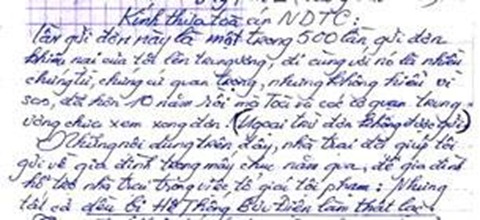 Kính thưa toà án NDTC:
lần gửi đơn này là một trong 500 lần, gửi đơn
khiếu nại của tôi lên trung ương, đi cùng với nó là nhiều
chứng từ, chứng cứ quan trọng, nhưng không hiểu vì
sao, đã hơn 10 năm rồi mà Toà và các cơ quan trung
ương chưa xem xong đơn. (Ngoại trừ đơn không được gửi)
Những nội dung trên đây, nhà trai đã giúp tôi
gửi về gia đình trong mấy chục năm qua, để gia đình
hỗ trợ nhà trai trong việc tố giác tội phạm: Nhưng
tất cả đều bị Hệ Thống Bưu Điện làm thất lạc